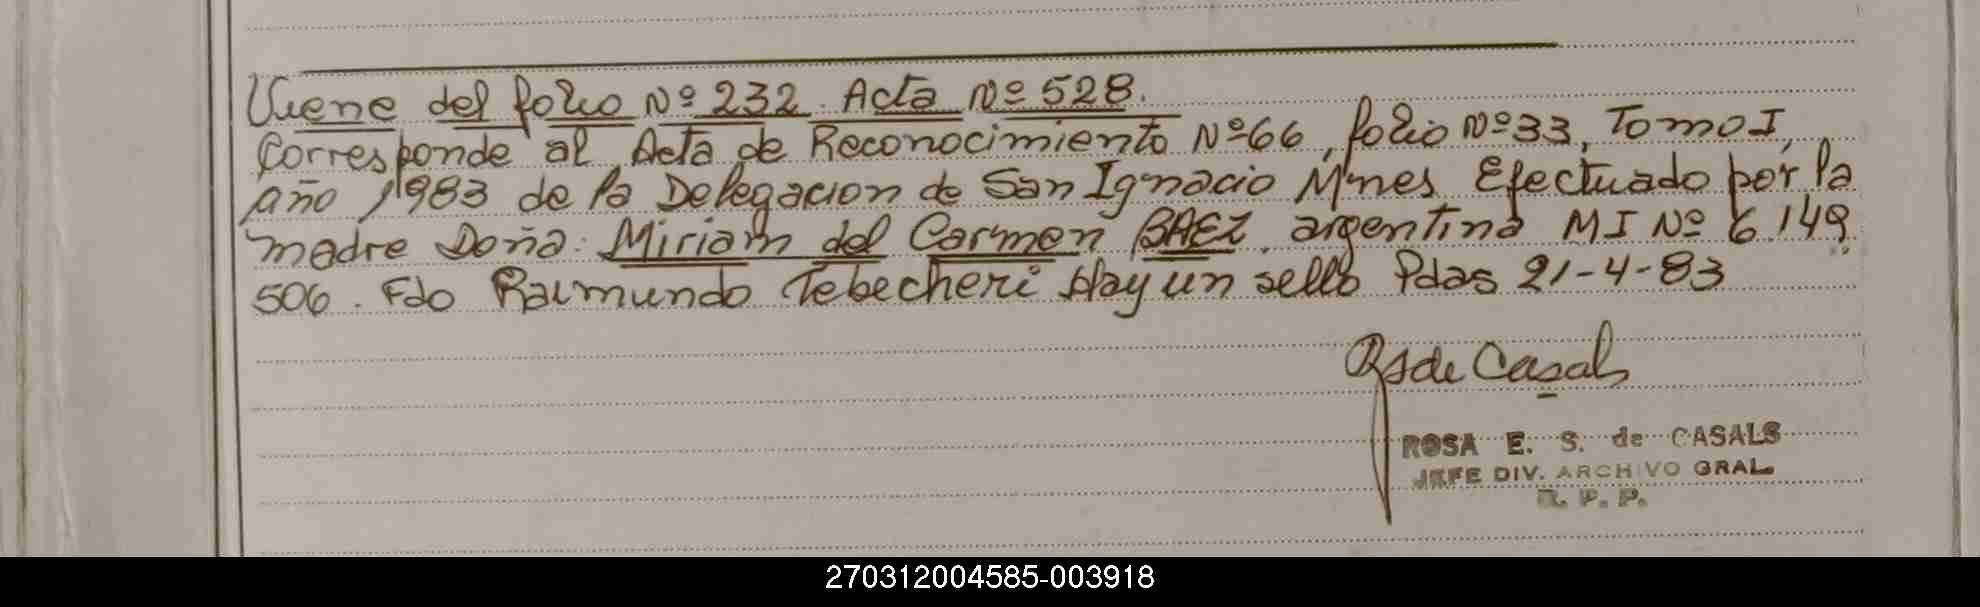 Viene del folio Nº 232. Acta Nº 528.
Corresponde al Acta de Reconocimiento Nº 66, folio Nº 33, Tomo I,
año 1983 de la Delegacion de San Ignacio Mnes Efectuado por la
madre Doña: Miriam del Carmen BAEZ. argentina MI Nº 6.149.
506. Fdo Raimundo Tebecheri Hay un sello Pdas 21-4-83
RSde Casals
ROSA E. S. de CASALS
JEFE DIV. ARCHIVO GRAL.
R. P. P.
270312004585-003918